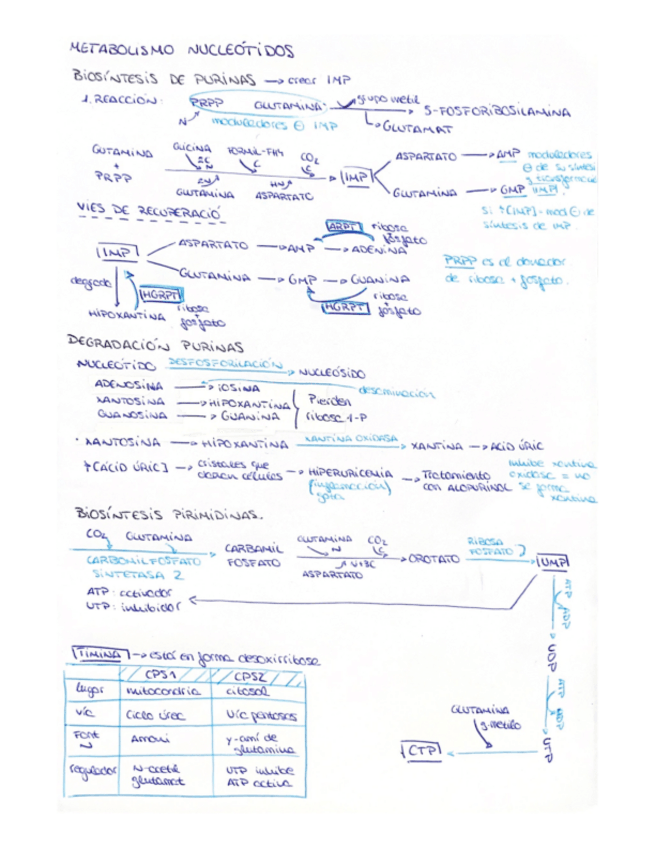 METABOLISMO NUCLEÓTIDOS
BIOSÍNTESIS DE PURINAS → crear IMP
1. REACCIÓN: PRPP GLUTAMINA grupo metil → 5-FOSFORIBOSILAMINA
N moduladores ⊖ IMP → GLUTAMAT
GUTAMINA + PRPP GLICINA 2C FORMIL-FH4 C CO2 C → IMP ASPARTATO → AMP moduladores
GLUTAMINA ASPARTATO GLUTAMINA → GMP IMP
⊖ de su síntesi y transformació
si ↑[IMP] = mod ⊖ de
síntesis de IMP.
VIES DE RECUPERACIÓ
IMP ASPARTATO → AMP → ADENINA
ARPT ribosa fosfato
GLUTAMINA → GMP → GUANINA
HGRPT ribosa fosfato
degrada HGRPT
HIPOXANTINA ribosa fosfato
PRPP es el donador
de ribosa + fosfato.
DEGRADACIÓN PURINAS
NUCLEÓTIDO DESFOSFORILACIÓN → NUCLEÓSIDO
ADENOSINA → iOSINA desaminación
XANTOSINA → HIPOXANTINA Pierden
GUANOSINA → GUANINA ribosa 1-P
· XANTOSINA → HIPOXANTINA XANTINA OXIDASA → XANTINA → ACID ÚRIC
↑[ACÍD ÚRIC] → cristales que dañan células → HIPERURICEMIA (inflamación) gota → Tratamiento con ALOPURINOL
inhibe xantina
oxidasa = no
se forma
xantina
BIOSÍNTESIS PIRIMIDINAS.
CO2 GLUTAMINA → CARBAMIL FOSFATO GLUTAMINA N CO2 C → OROTATO RIBOSA FOSFATO → UMP
CARBOMILFOSFATO
SINTETASA 2
N+3C
ASPARTATO
ATP: activador
UTP: inhibidor
ATP ADP
UDP
ATP ADP
UTP
GLUTAMINA
g. metilo
CTP
TIMINA → está en forma desoxirribosa
CPS1 CPS2
lugar mitocondria citosol
vía Ciclo úrec Vía pentosas
Font N Amoni γ-amí de glutamina
regulador N-acetil glutamat UTP inhibe ATP activa